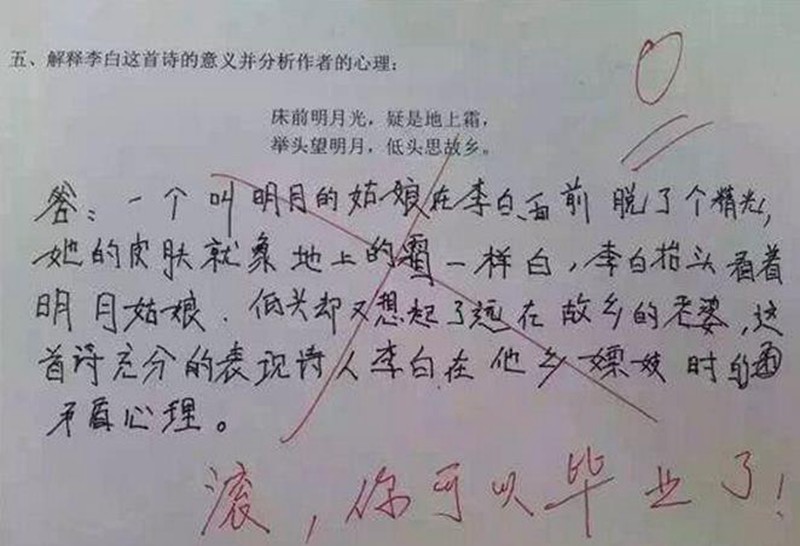 五、解释李白这首诗的意义并分析作者的心理:
0
床前明月光，疑是地上霜，
举头望明月，低头思故乡。
答：一个叫明月的姑娘在李白面前脱了个精光，
她的皮肤就象地上的霜一样白，李白抬头看着
明月姑娘．低头却又想起了远在故乡的老婆，这
首诗充分的表现诗人李白在他乡嫖妓时的
矛盾心理。
滚，你可以毕业了！